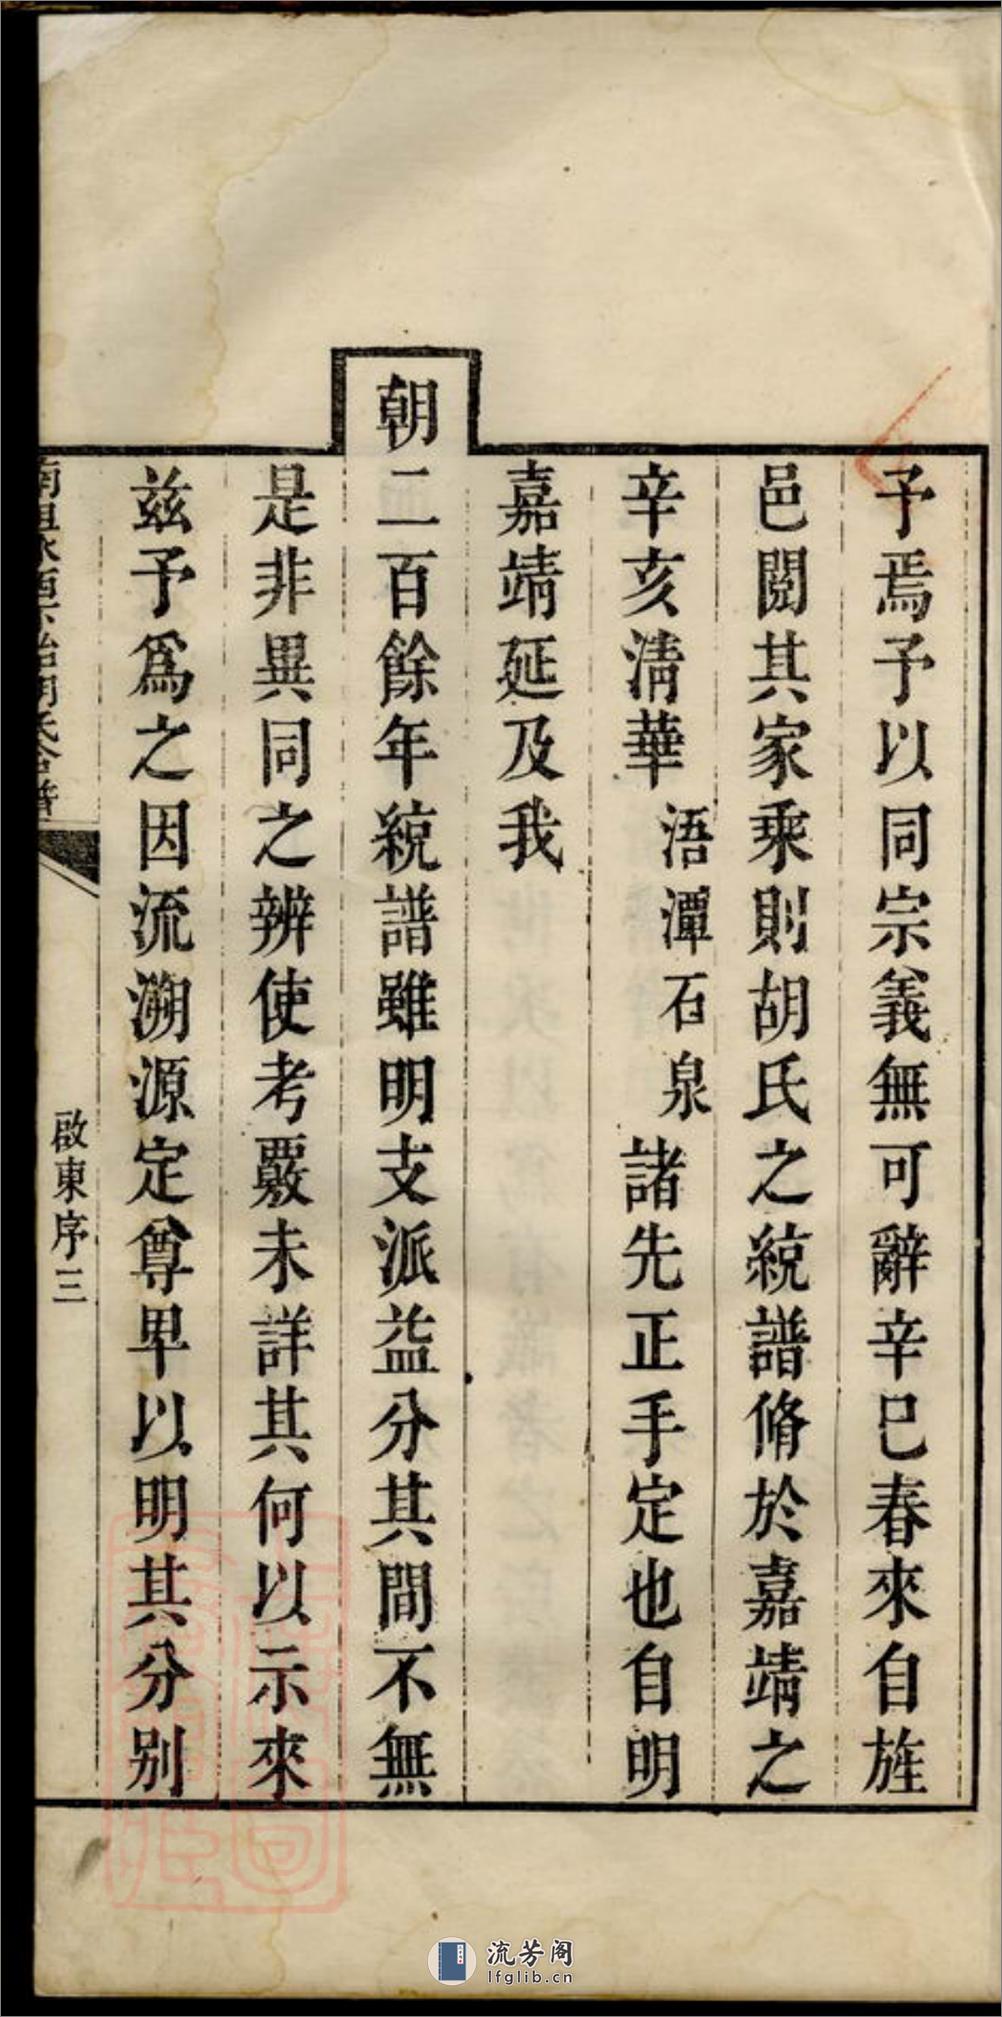 予焉予以同宗義無可辭辛巳春來自旌
邑閱其家乘則胡氏之統譜脩於嘉靖之
辛亥清華浯潭石泉諸先正手定也自明
嘉靖延及我
朝二百餘年統譜雖明支派益分其間不無
是非異同之辨使考覈未詳其何以示來
茲予爲之因流溯源定尊卑以明其分別
啟東序三
流芳阁
lfglib.cn